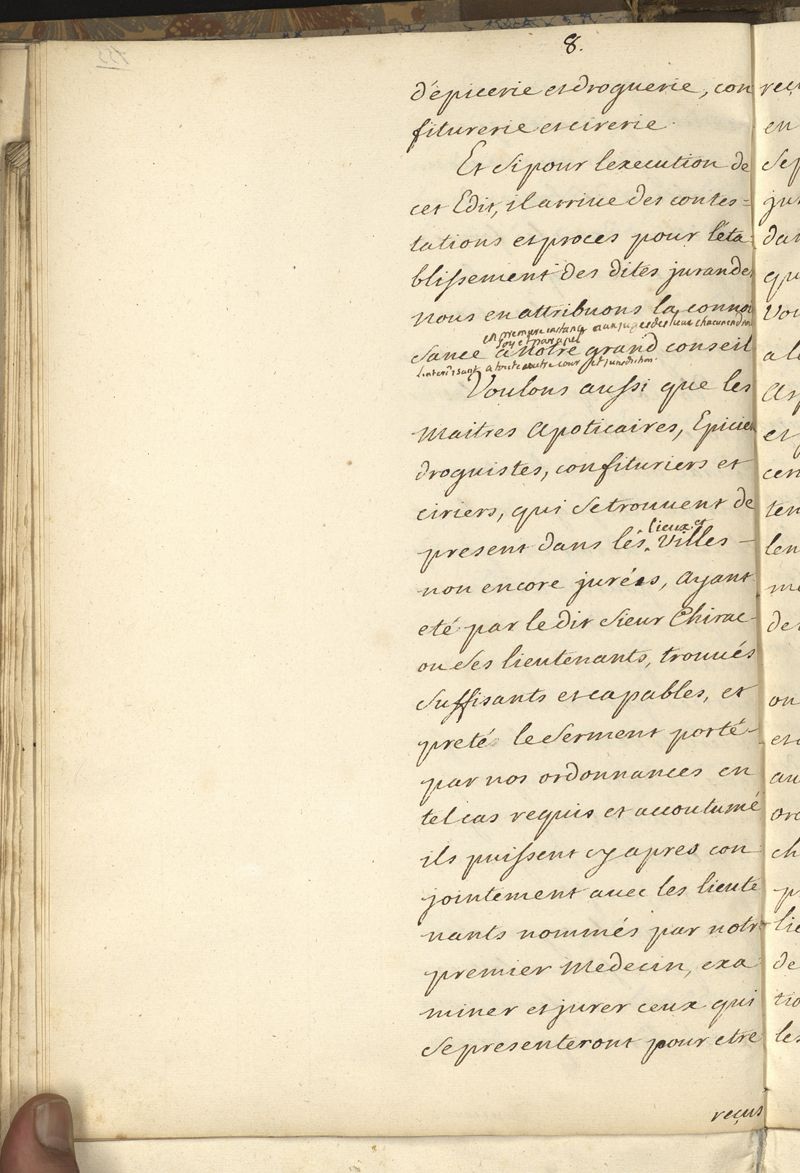 8.
d'épicerie et droguerie, con
fiturerie et cirerie.
Et si pour l'execution de
cet Edit, il arrive des contes=
tations et proces pour l'éta=
blissement des dites jurandes
nous en attribuons la connoi
en premiere instance aux juges des lieux chacun en droit
soy et par apel
sance a notre grand conseil
l'interdisant a toute autre cour et jurisdiction.
Voulons aussi que les
Maitres Apoticaires, Epiciers
droguistes, confituriers et
ciriers, qui se trouvent de
lieux et
present dans les villes –
non encore jurées, ayant
eté par le dit Sieur Chirac
ou ses lieutenants, trouvés
suffisants et capables, et
preté le serment porté
par nos ordonnances en
tel cas requis et accoutumé
ils puissent cy apres con
jointement avec les lieute
nants nommés par notre
premier Medecin, exa
miner et jurer ceux qui
se presenteront pour etre
reçus
reçu
en
Sep
jur
dan
qu
Vou
a le
As
et
cen
ten
len
me
des
on
et
au
ord
ch
p
lie
de
tio
les